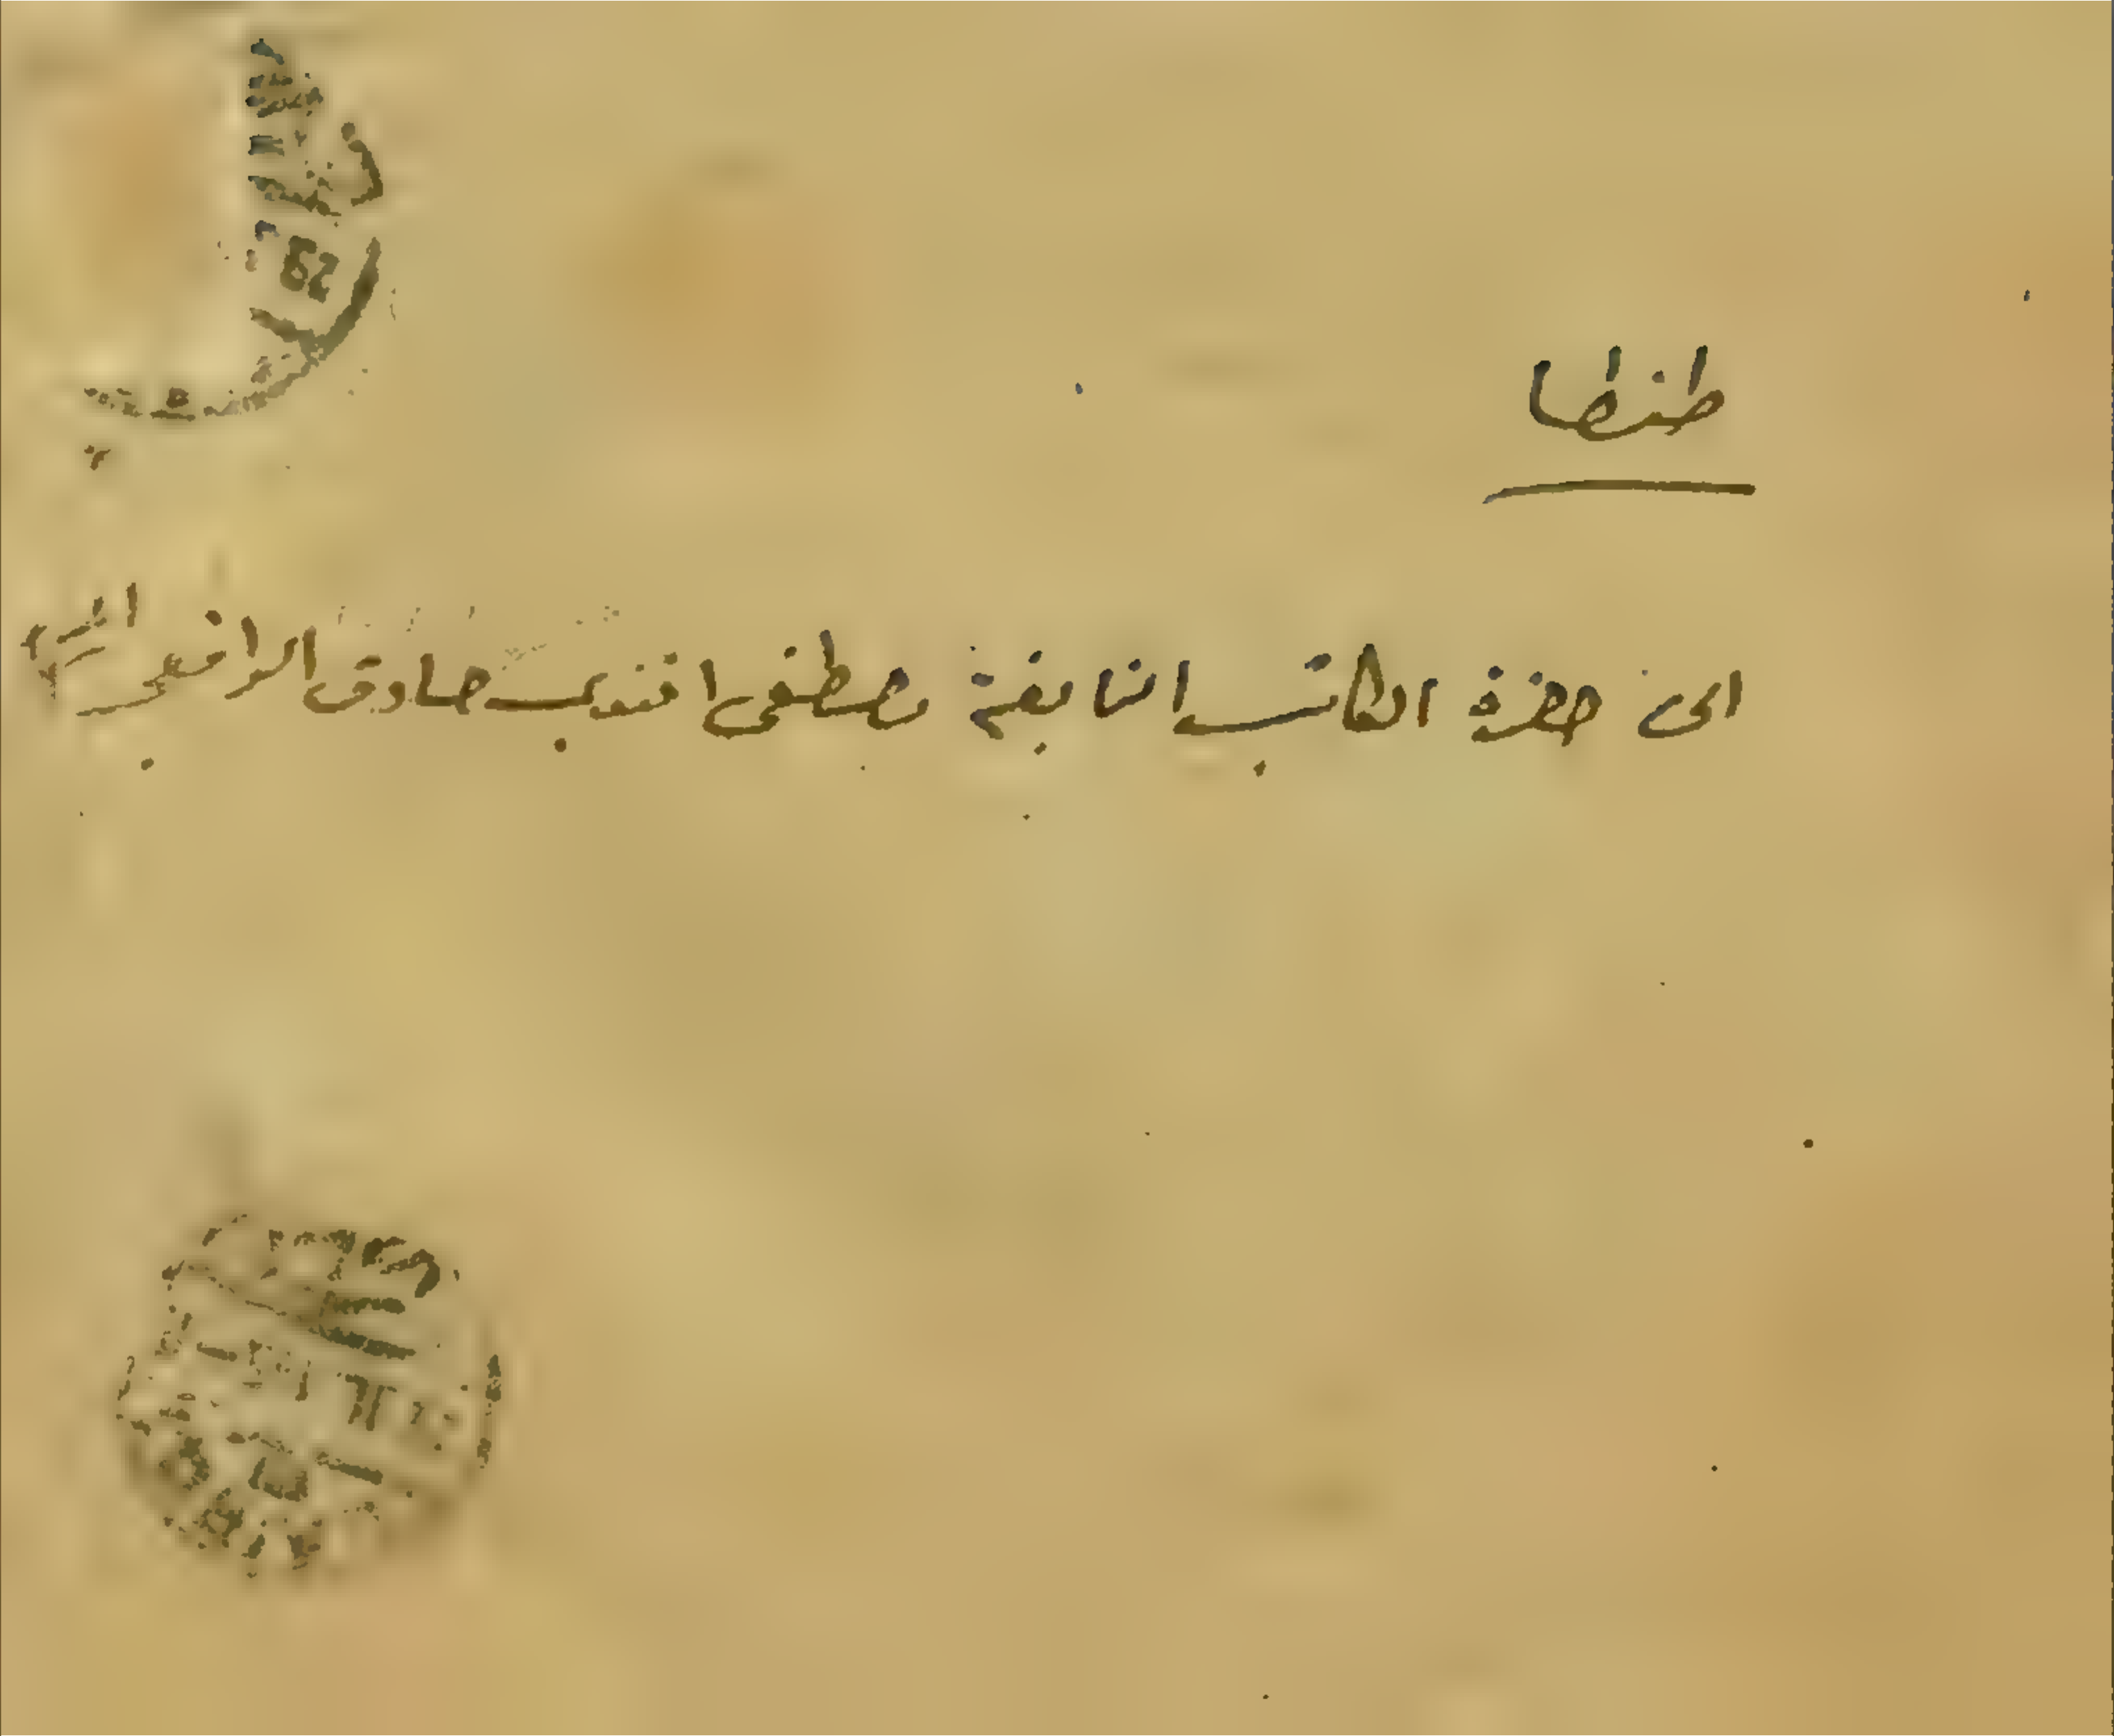 طنطا
الى حضرة الكاتب النابغة مصطفى افندي صادق الرافعي